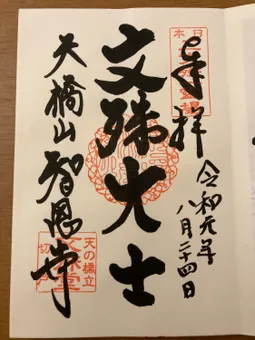 奉拝
令和元年
八月二十四日
文殊大士
天橋山智恩寺
天の橋立
文殊堂
切戸